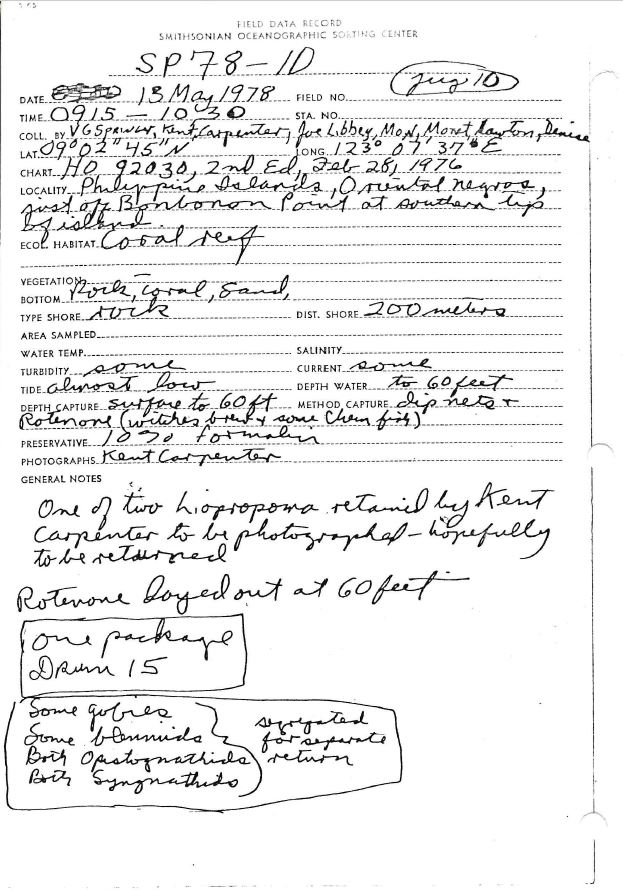 FIELD DATA RECORD
SMITHSONIAN OCEANOGRAPHIC SORTING CENTER
SP78-10
Jug 10
DATE 13 May 1978 FIELD NO.
TIME 0915 - 10 30 STA. NO.
COLL. BY VGSpringer, Kent Carpenter, Joe Libbey, Lawton, Denise
LAT. 09° 02" 45"N LONG. 123° 07' 37" E
CHART HO 92030, 2nd Ed, Feb 28, 1976
LOCALITY Philippine Islands, Oriental negros,
just off Bonbonon Point at southern tip
of island
ECOL. HABITAT Coral reef
VEGETATION
BOTTOM Rock, coral, sand,
TYPE SHORE rock DIST. SHORE 200 meters
AREA SAMPLED
WATER TEMP. SALINITY
TURBIDITY some CURRENT some
TIDE almost low DEPTH WATER to 60 feet
DEPTH CAPTURE surface to 60 ft METHOD CAPTURE dipnets +
Rotenone (witches brew + some Chem fish)
PRESERVATIVE 10% Formalin
PHOTOGRAPHS Kent Carpenter
GENERAL NOTES
One of two Liopropoma retained by Kent
Carpenter to be photographed - hopefully
to be returned
Rotenone layed out at 60 feet
One package
Drum 15
Some gobies
Some blenniids
Both Opistognathids
Both Syngnathids
segregated
for separate
return